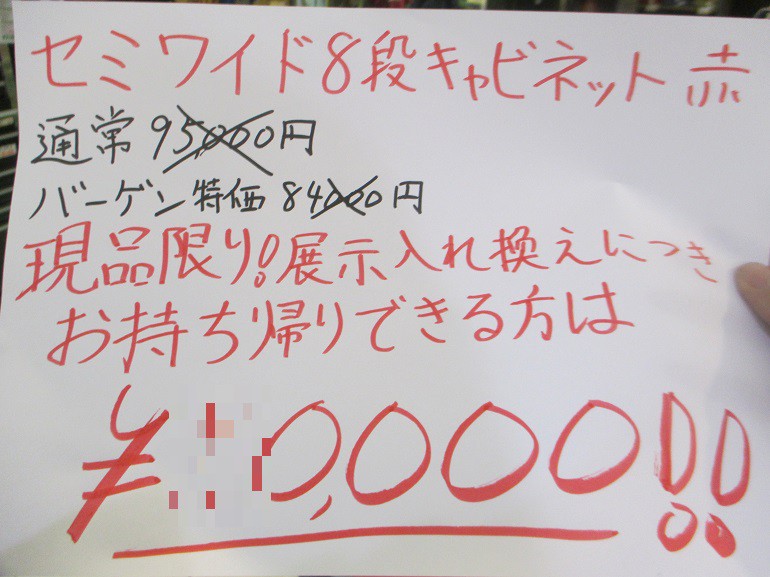 セミワイド8段キャビネット 赤
通常 95,000円
バーゲン特価 84000円
現品限り!展示入れ換えにつき
お持ち帰りできる方は
¥0,000!!